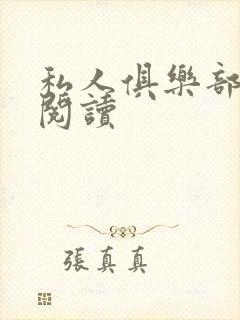 私人俱樂部
閱讀
張真真